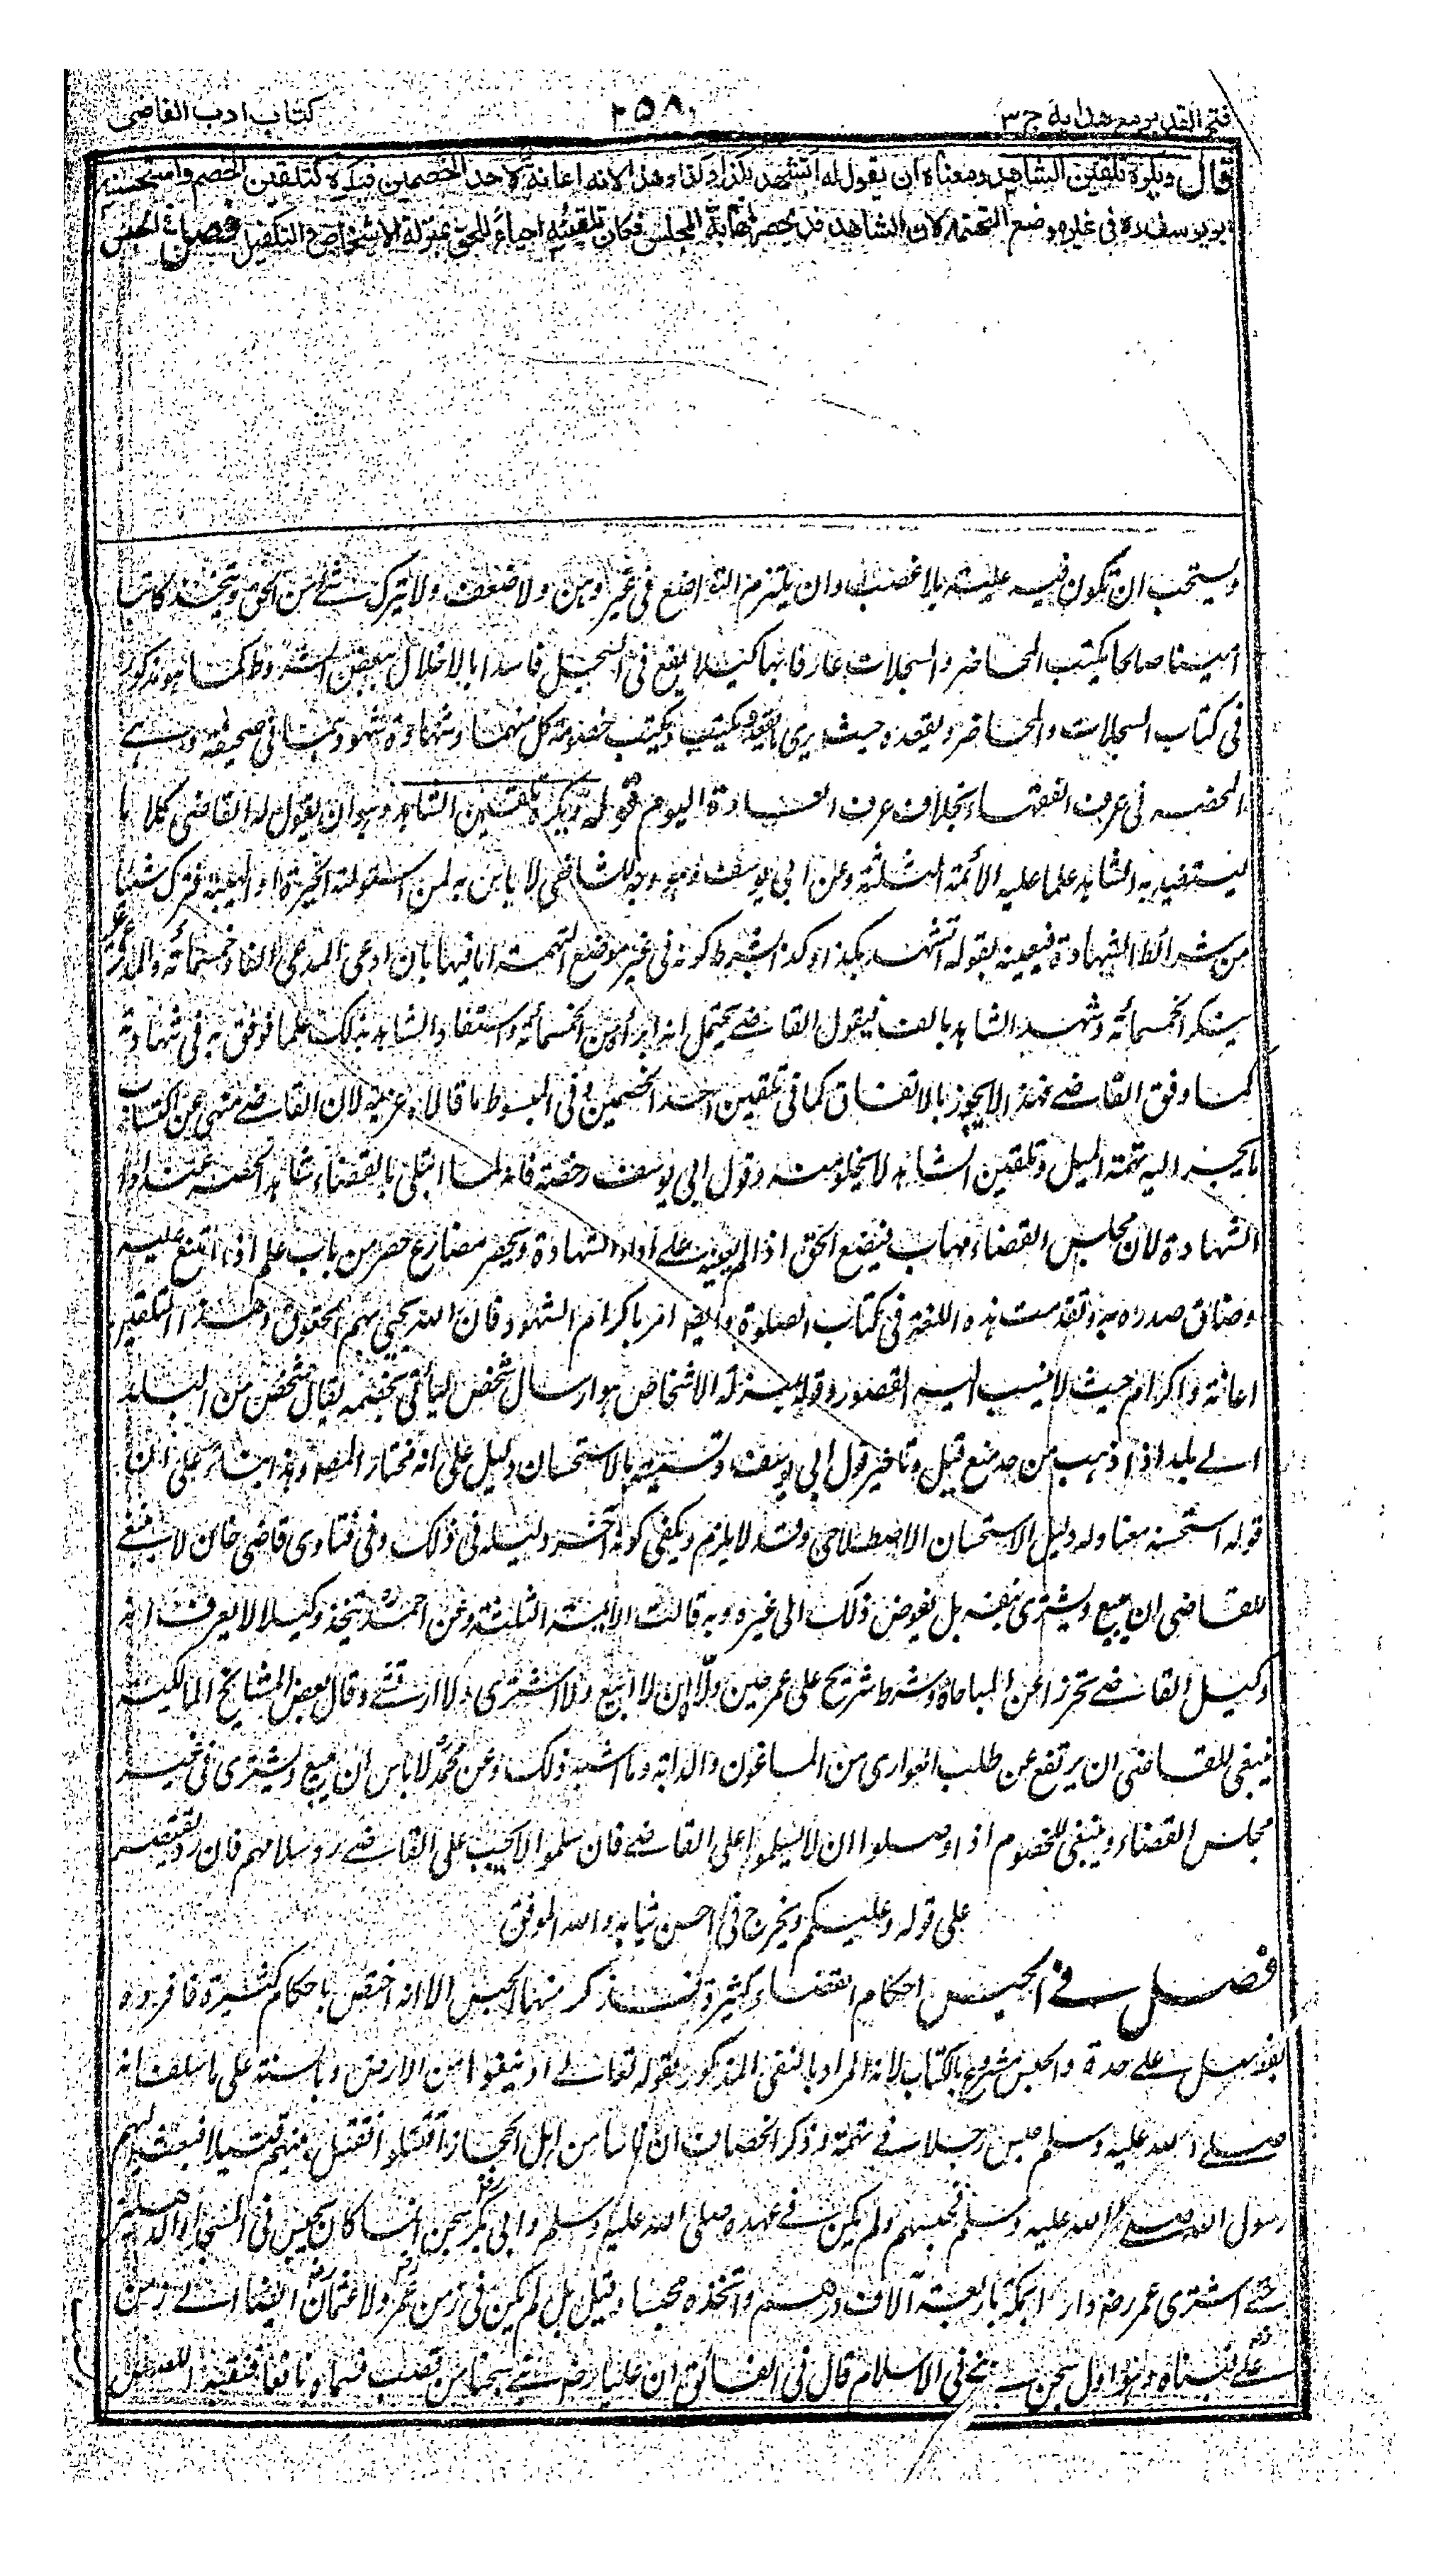 فتح القدیر مع هدایة ج ٣
٢٥٨
كتاب ادب القاضی
قال ویكره تلقین الشاهد ومعناه ان یقول له اتشهد بكذا وكذا وهذا لانه اعانة لاحد الخصمین فیكره كتلقین الخصم واستحسنه
ابو یوسف ره فی غیر موضع التهمة لان الشاهد قد یحصر لمهابة المجلس فكان تلقینه احیاء للحق بمنزلة الاشخاص والتكفیل فصل فی الحبس
ویستحب ان تكون فیه عبسة بلا غضب وان یلتزم التواضع فی غیر وهن ولا ضعف ولا یترك شئ من الحق ویتخذ كاتبا
امینا صالحا یكتب المحاضر والسجلات عارفا بها كیلا یقع فی السجل فاسدا بالاخلال ببعض الشروط كما هو مذكور
فی كتاب السجلات والمحاضر ویقعده حیث یری ما یقید ویكتب ویكتب خصومة كل منهما وشهادة شهودهما فی صحیفة وهے
المحضر فی عرف الفقهاء بخلاف عرف العادة الیوم قوله ویكره تلقین الشاهد وهو ان یقول له القاضی كلاما
یستفید به الشاهد علما علیه الائمة الثلثة وعن ابی یوسف وهو وجه للشافعی لا باس به لمن استولته الحیرة او الهیبة فترك شیئا
من شرائط الشهادة فیعینه بقوله اتشهد بكذا وكذا بشرط كونه فی غیر موضع التهمة اما فیها بان ادعی المدعی الفا وخمسمائة والمدعی علیه
ینكر الخمسمائة وشهد الشاهد بالف فیقول القاضے یحتمل انه ابرأه من الخمسمائة واستفاد الشاهد بذلك علما فوفق به فی شهادته
كما وفق القاضے فهذا لا یجوز بالاتفاق كما فی تلقین احد الخصمین وفی المبسوط ما قالاه عزیمة لان القاضے منهی عن اكتساب
ما یجر الیه تهمة المیل وتلقین الشاهد لا یخلو منه وقول ابی یوسف رخصة فانه لما ابتلی بالقضاء شاهد الحصر عند اداء
الشهادة لان مجلس القضاء مهاب فیضیع الحق اذا لم یعنه علے اداء الشهادة ویحصر مضارع حصر من باب علم اذا امتنع علیه
وضاق صدره به وتقدمت هذه اللغة فی كتاب الصلوة وایضا امر باكرام الشهود فان الله یحیی بهم الحقوق وهذا التلقین
اعانة واكرام حیث لا ینسب الیه القصور وقوله بمنزلة الاشخاص هو ارسال شخص لیأتی بخصمه یقال شخص من البلد
الے بلد اذا ذهب من حد منع قیل وتاخیر قول ابی یوسف وتسمیته بالاستحسان دلیل علی انه مختار المصنف وهذا بناء علی ان
قوله استحسنه معناه له دلیل الاستحسان الاصطلاحی وقد لا یلزم ویكفی كونه آخر دلیله فی ذلك وفی فتاوی قاضی خان لا ینبغے
للقاضی ان یبیع ویشتری بنفسه بل یفوض ذلك الی غیره وبه قالت الائمة الثلثة وعن احمد یتخذ وكیلا لا یعرف انه
وكیل القاضے تحرزا عن المحاباة وشرط شریح علی عمر حین ولاه ان لا ابیع ولا اشتری ولا ارتشے وقال بعض المشایخ المالكیة
ینبغی للقاضی ان یرتفع عن طلب العواری من الماعون والدابة وما اشبه ذلك وعن محمد لا باس ان یبیع ویشتری فی غیر
مجلس القضاء وینبغی للخصوم اذا وصلوا ان لا یسلموا علی القاضے فان سلموا لا یجب علی القاضے رد سلامهم فان رد یقتصر
علی قوله وعلیكم ویخرج فی احسن ثیابه والله الموفق
فصل فے الحبس احكام القضاء كثیرة فذكر منها الحبس الا انه اختص باحكام كثیرة فافرده
بفصل علے حدة والحبس مشروع بالكتاب لانه المراد بالنفی المذكور بقوله تعالے او ینفوا من الارض وبالسنة علی ما سلف انه
صلے الله علیه وسلم حبس رجلا فے تهمة وذكر الخصاف ان ناسا من اهل الحجاز اقتتلوا فقتل بینهم قتیلا فبعث الیهم
رسول الله صلے الله علیه وسلم فحبسهم ولم یكن فے عهده صلی الله علیه وسلم وابی بكر سجن انما كان یحبس فی المسجد او الدهلیز
حتے اشتری عمر رضه دارا بمكة باربعة آلاف درهم واتخذه محبسا وقیل بل لم یكن فی زمن عمر ولا عثمان ایضا الے زمن
علے فبناه وهو اول سجن بنی فی الاسلام قال فی الفائق ان علیا رضه بنے سجنا من قصب فسماه نافعا فنقبه اللصوص